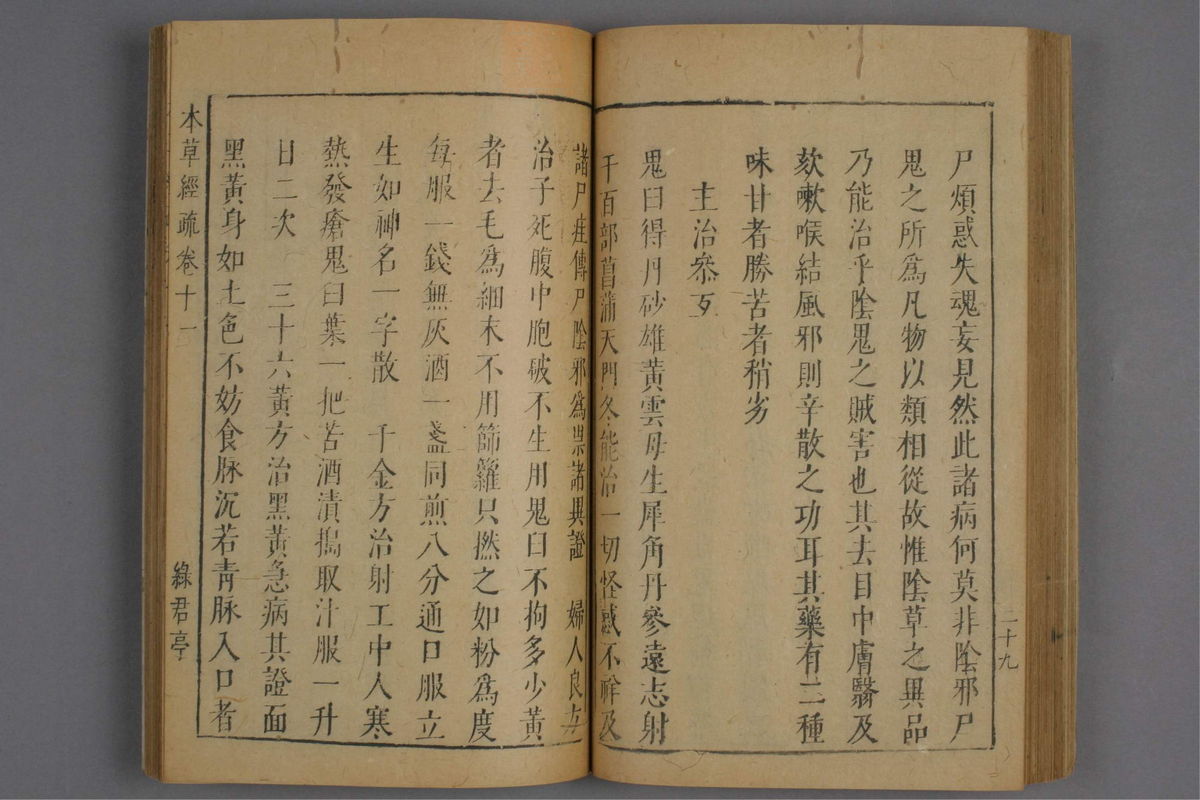 尸煩惑失魂妄見然此諸病何莫非陰邪尸
鬼之所為凡物以類相從故惟陰草之異品
乃能治乎陰鬼之賊害也其去目中膚翳及
欬嗽喉結風邪則辛散之功耳其藥有二種
味甘者勝苦者稍劣
主治叅互
鬼臼得丹砂雄黃雲母生犀角丹參遠志射
干百部菖蒲天門冬能治一切怪惑不祥及
二十九
諸尸疰傳尸陰邪為祟諸異證 婦人良方
治子死腹中胞破不生用鬼臼不拘多少黃
者去毛為細末不用篩籮只撚之如粉為度
每服一錢無灰酒一盞同煎八分通口服立
生如神名一字散 千金方治射工中人寒
熱發瘡鬼臼葉一把苦酒漬搗取汁服一升
日二次 三十六黃方治黑黃急病其證面
黑黃身如土色不妨食脉沉若青脉入口者
本草經疏卷十一
綠君亭